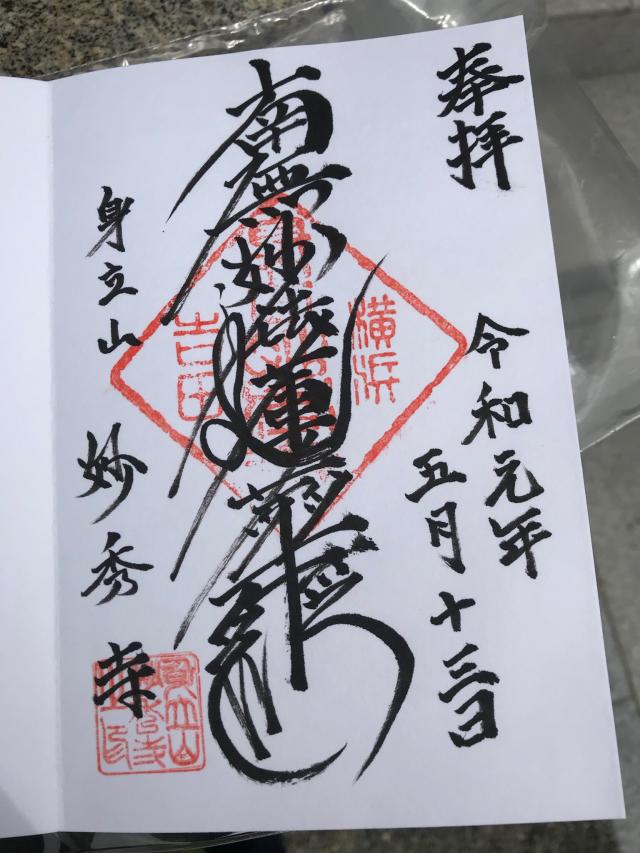 奉拝
令和元年
五月十三日
南無妙法蓮華経
横浜
吉田
身立山 妙秀寺